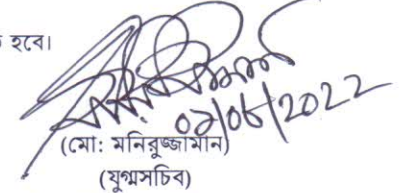 হবে।
০৯/০৬/2022
(মো: মনিরুজ্জামান)
(যুগ্মসচিব)